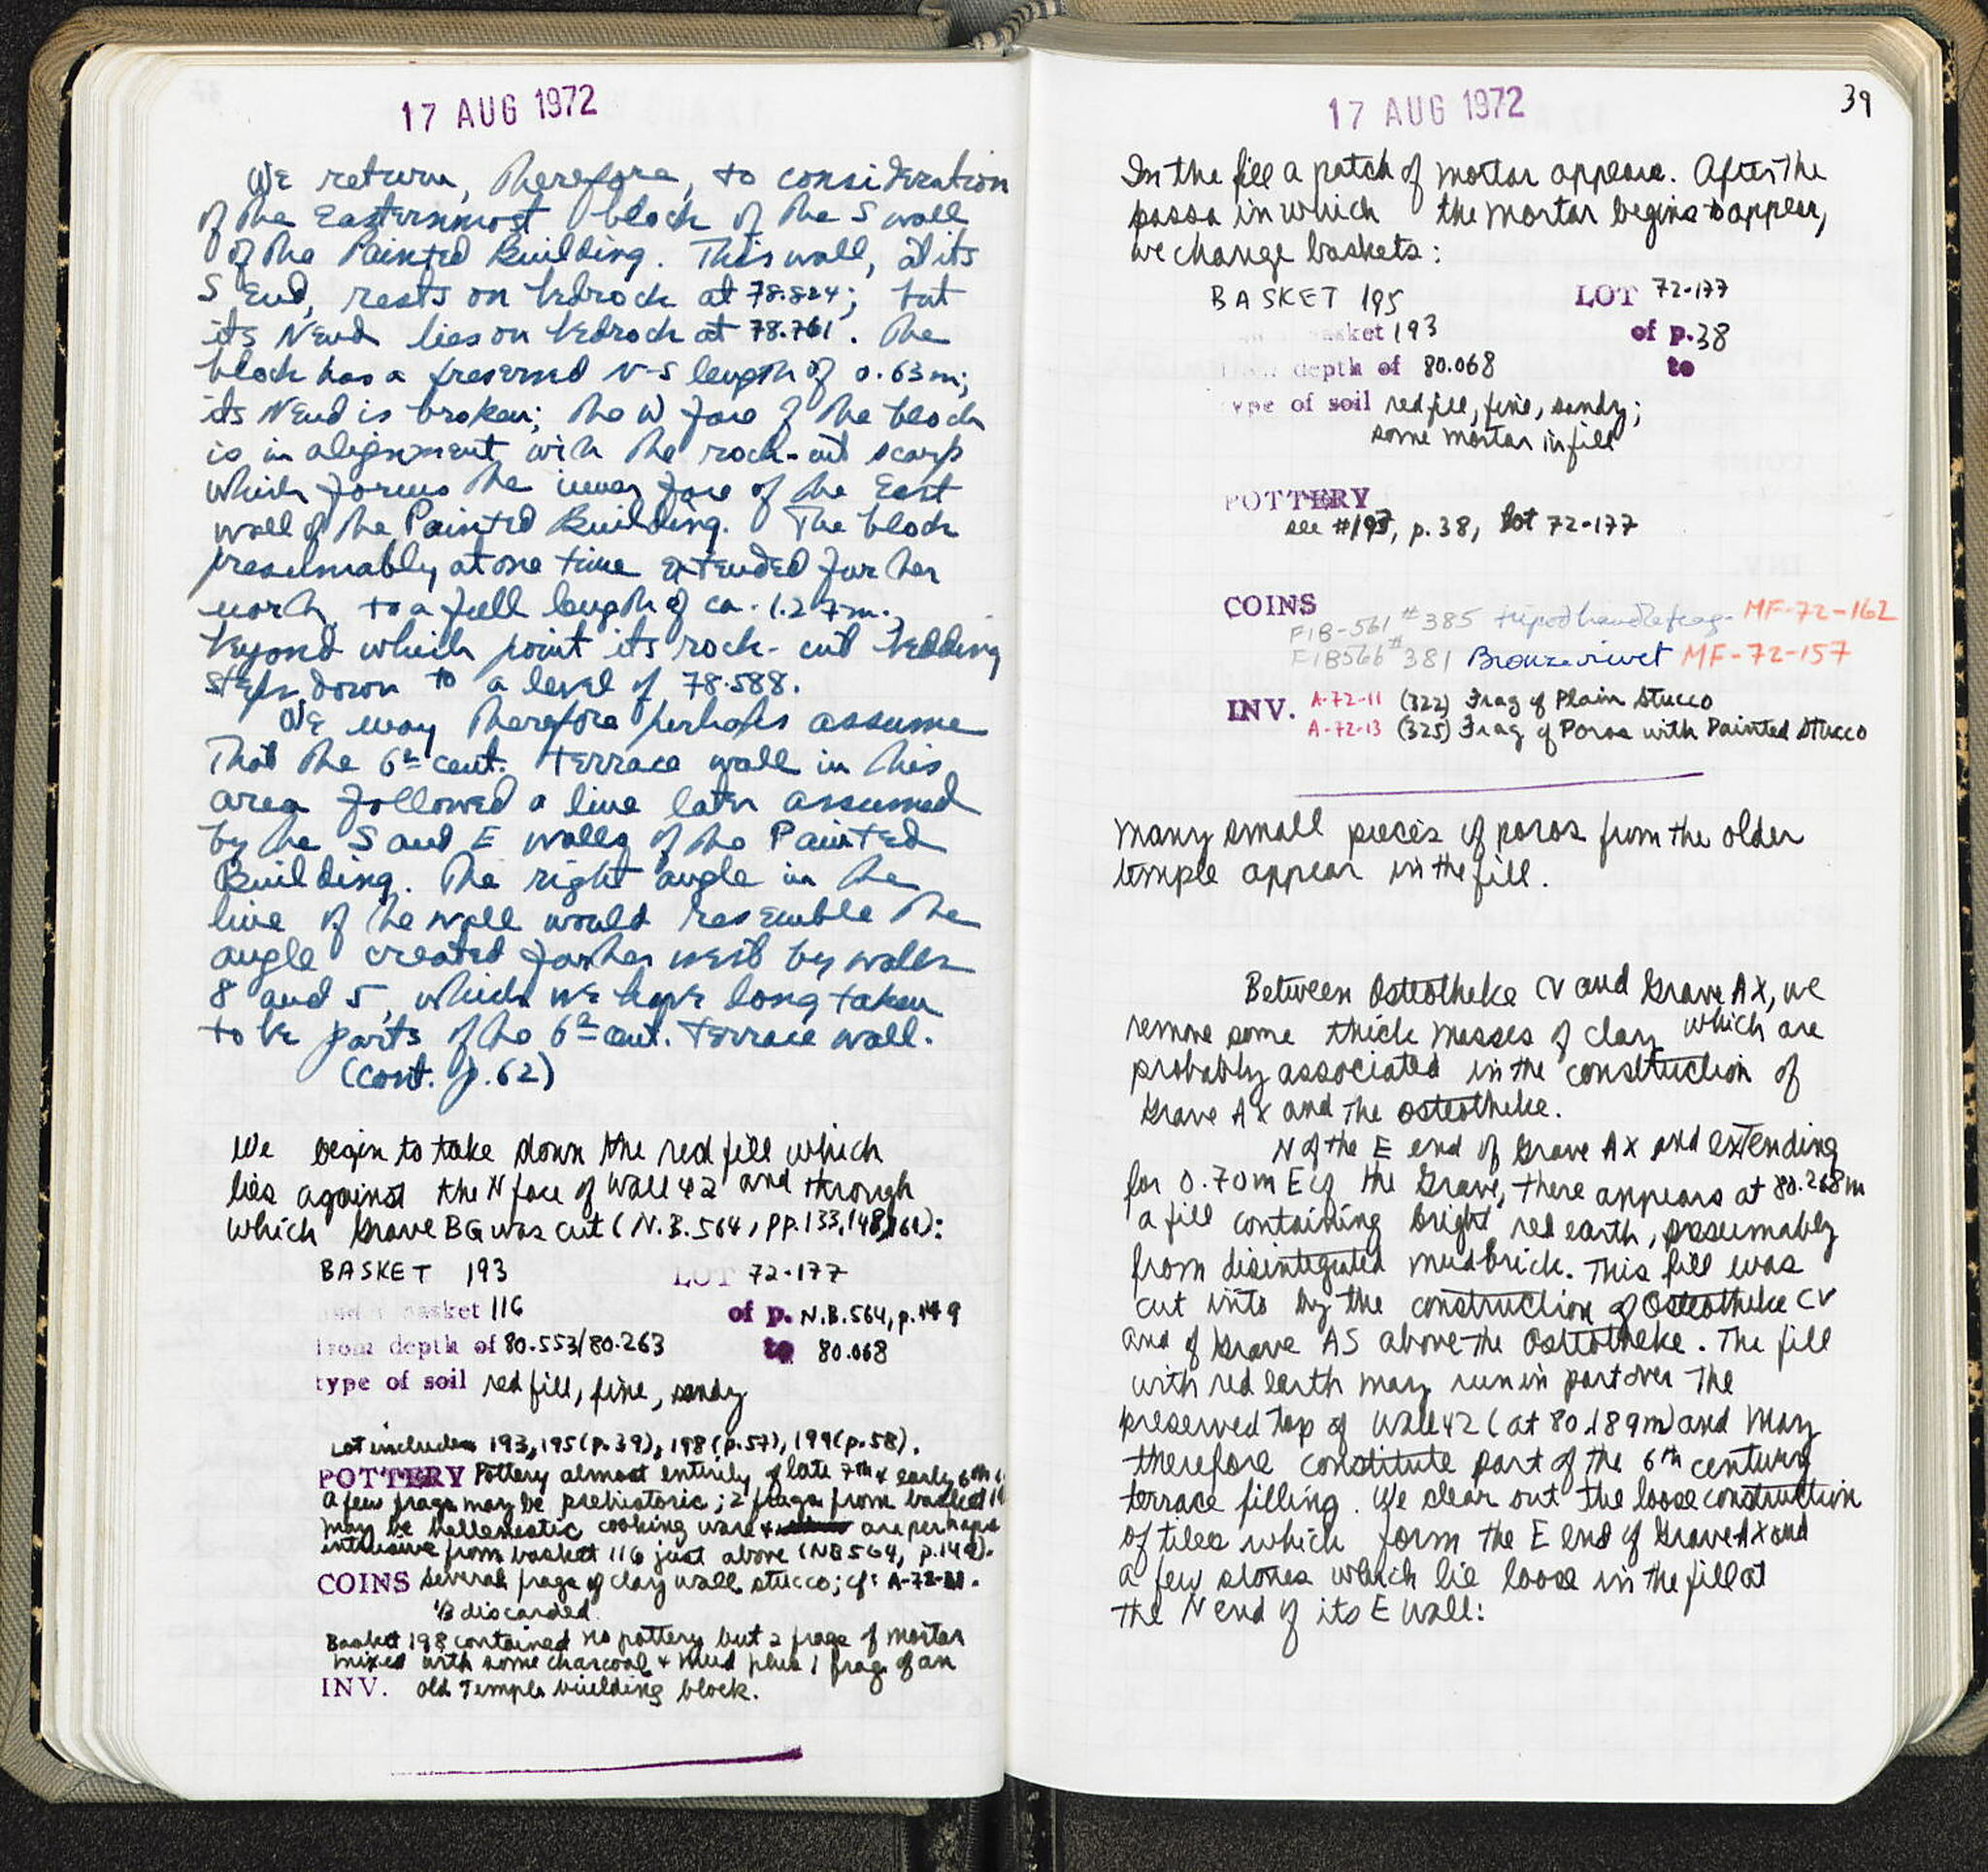 17 AUG 1972
We return, therefore, to consideration
of the Easternmost block of the S wall
of the Painted Building. This wall, at its
S End, rests on bedrock at 78.824; but
its N End lies on bedrock at 78.761. The
block has a preserved N-S length of 0.63m;
its N End is broken; the W face of the block
is in alignment with the rock-cut scarp
which forms the inner face of the East
wall of the Painted Building. The block
presumably at one time extended further
north, to a full length of ca. 1.27m.,
beyond which point its rock-cut bedding
steps down to a level of 78.588.
We may therefore perhaps assume
that the 6th cent. terrace wall in this
area followed a line later assumed
by the S and E walls of the Painted
Building. The right angle in the
line of the wall would resemble the
angle created farther west by walls
8 and 5, which we have long taken
to be parts of the 6th cent. terrace wall.
(cont. p.62)
We begin to take down the red fill which
lies against the N face of Wall 42 and through
which Grave BG was cut (N.B. 564, pp. 133, 148, 161):
BASKET 193 LOT 72-177
under basket 116 of p. N.B. 564, p. 149
from depth of 80.553/80.263 to 80.068
type of soil red fill, fine, sandy
Lot includes 193, 195(p.39), 198(p.57), 199(p.58).
POTTERY Pottery almost entirely of late 7th & early 6th
A few frags may be prehistoric; 2 frags from basket
may be hellenistic cooking ware & are perhaps
intrusive from basket 116 just above (NB 564, p.149).
COINS several frags of clay wall stucco; cf: A-72-11.
1/3 discarded.
Basket 198 contained no pottery but 2 frags of mortar
mixed with some charcoal & mud plus 1 frag of an
INV. old Temple building block.
17 AUG 1972
39
In the fill a patch of mortar appears. After the
passa in which the mortar begins to appear,
we change baskets:
BASKET 195 LOT 72-177
basket 193 of p. 38
from depth of 80.068 to
type of soil red fill, fine, sandy;
some mortar in fill
POTTERY
see #193, p. 38, lot 72-177
COINS
FIB-561 #385 tripod handle frag. MF-72-162
FIB566 #381 Bronze rivet MF-72-157
INV. A-72-11 (322) Frag of Plain Stucco
A-72-13 (325) Frag of Poros with Painted Stucco
many small pieces of poros from the older
temple appear in the fill.
Between Osteotheke CV and Grave AX, we
remove some thick masses of clay which are
probably associated in the construction of
Grave AX and the osteotheke.
N of the E end of Grave AX and extending
for 0.70m E of the Grave, there appears at 80.268m
a fill containing bright red earth, presumably
from disintegrated mudbrick. This fill was
cut into by the construction of Osteotheke CV
and of Grave AS above the Osteotheke. The fill
with red earth may run in part over the
preserved top of Wall 42 (at 80.189m) and may
therefore constitute part of the 6th century
terrace filling. We clear out the loose construction
of tiles which form the E end of Grave AX and
a few stones which lie loose in the fill at
the N end of its E wall: